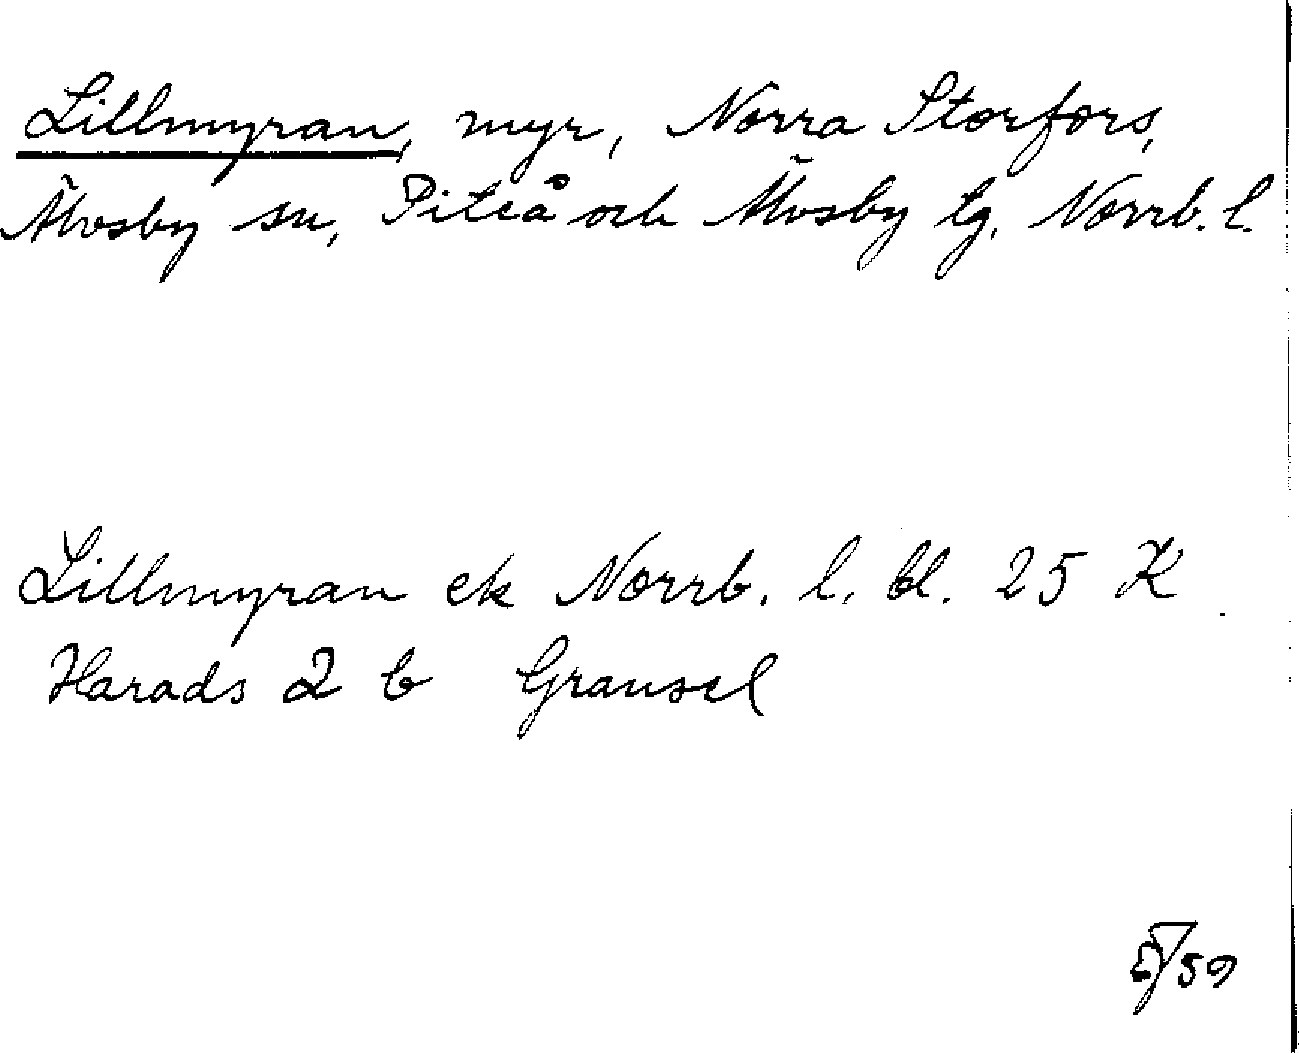 Lillmyran, myr, Norra Storfors,
Älvsby sn, Piteå och Älvsby tg, Norrb. l.
Lillmyran ek Norrb. l. bl. 25 K
Harads 2 b Gransel
/59